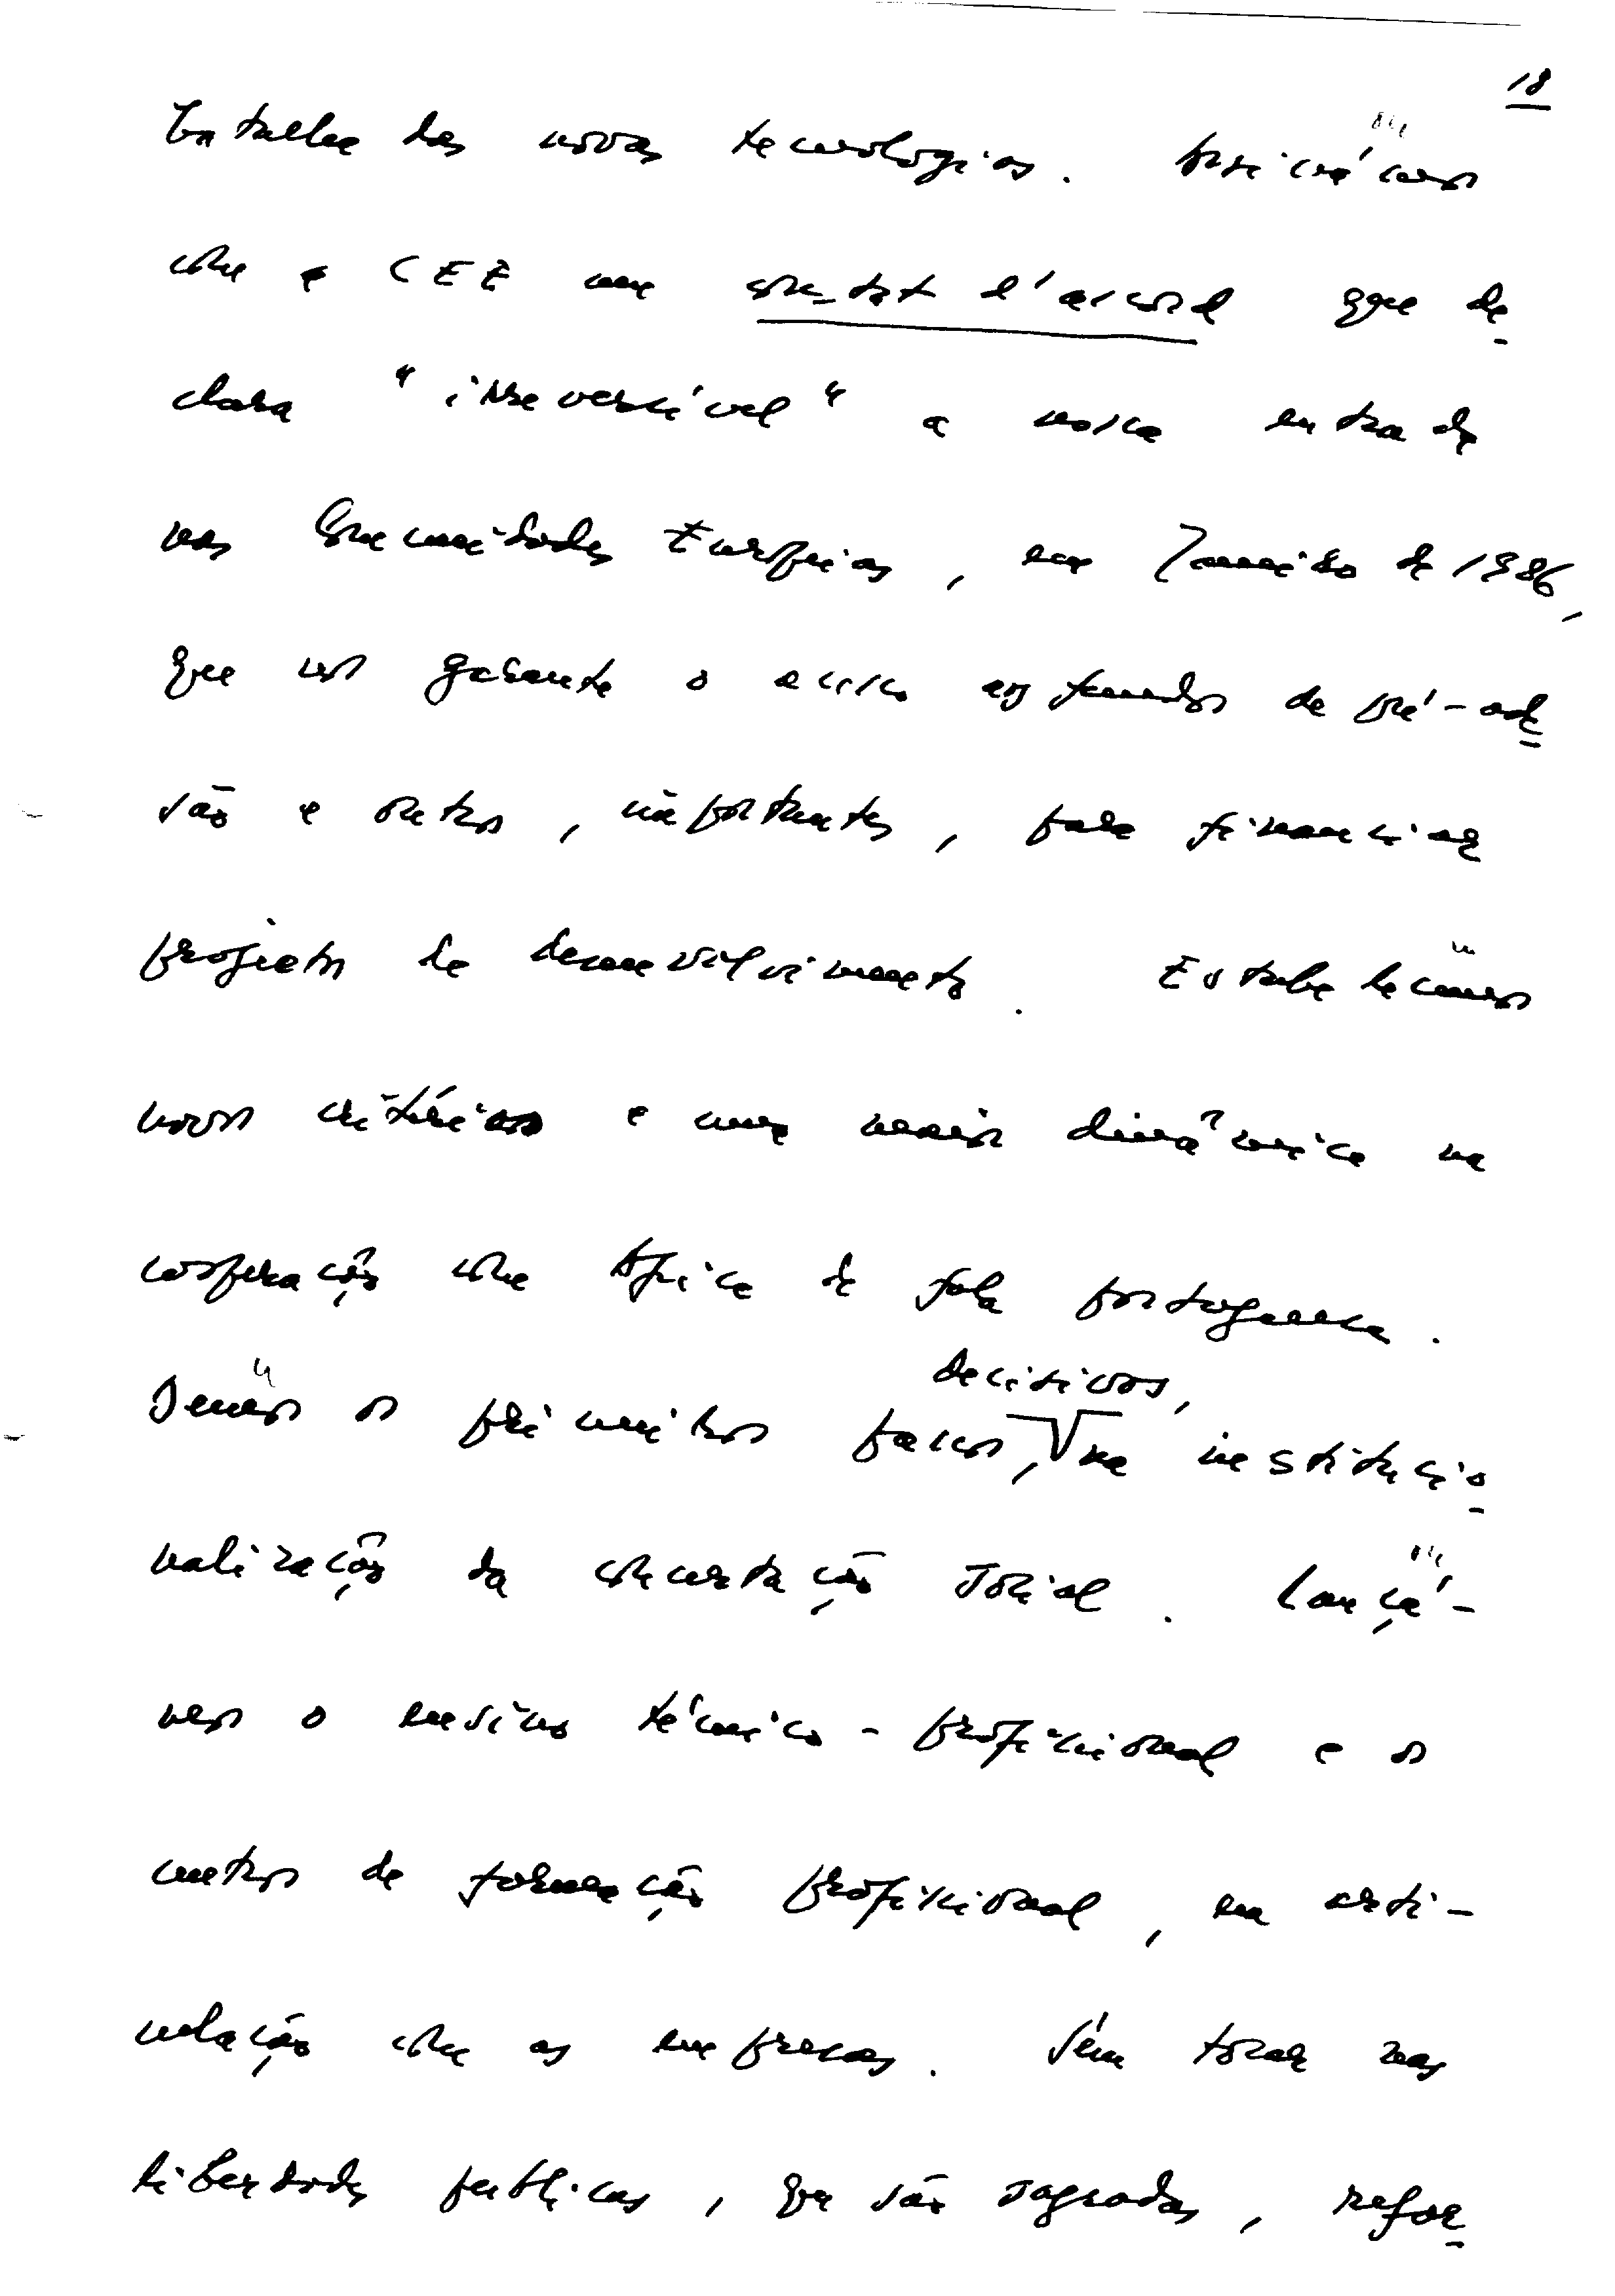 18
batalha das novas tecnologias. Assinámos
com a CEE um constat d'accord que de
clara "irreversível" a nossa entrada
nas Comunidades Europeias, em Janeiro de 1986,
que nos garante o acesso aos fundos de pré-ade
são e outros, importantes, para financiar
projectos de desenvolvimento. Estabelecemos
novos critérios e uma maior dinâmica na
cooperação com África de fala portuguesa.
decisivos,
Demos os primeiros passos, na institucio
nalização da concertação social. Lançá-
mos o ensino técnico-profissional e os
centros de formação profissional, em arti-
culação com as empresas. Sem tocar nas
liberdades publicas, que são sagradas, refor